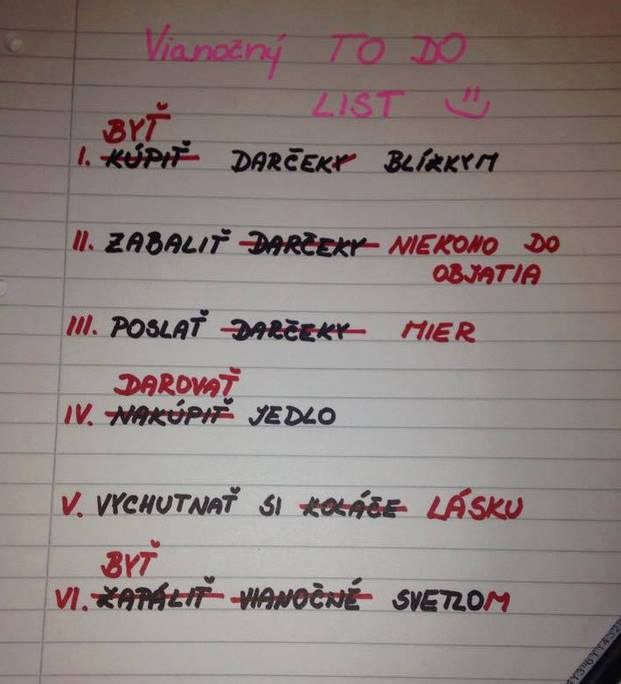 Vianočný TO DO
LIST
BYŤ
I. KÚPIŤ DARČEKY BLÍZKYM
II. ZABALIŤ DARČEKY NIEKOHO DO
OBJATIA
III. POSLAŤ DARČEKY MIER
DAROVAŤ
IV. NAKÚPIŤ JEDLO
V. VYCHUTNAŤ SI KOLÁČE LÁSKU
BYŤ
VI. ZAPÁLIŤ VIANOČNÉ SVETLOM